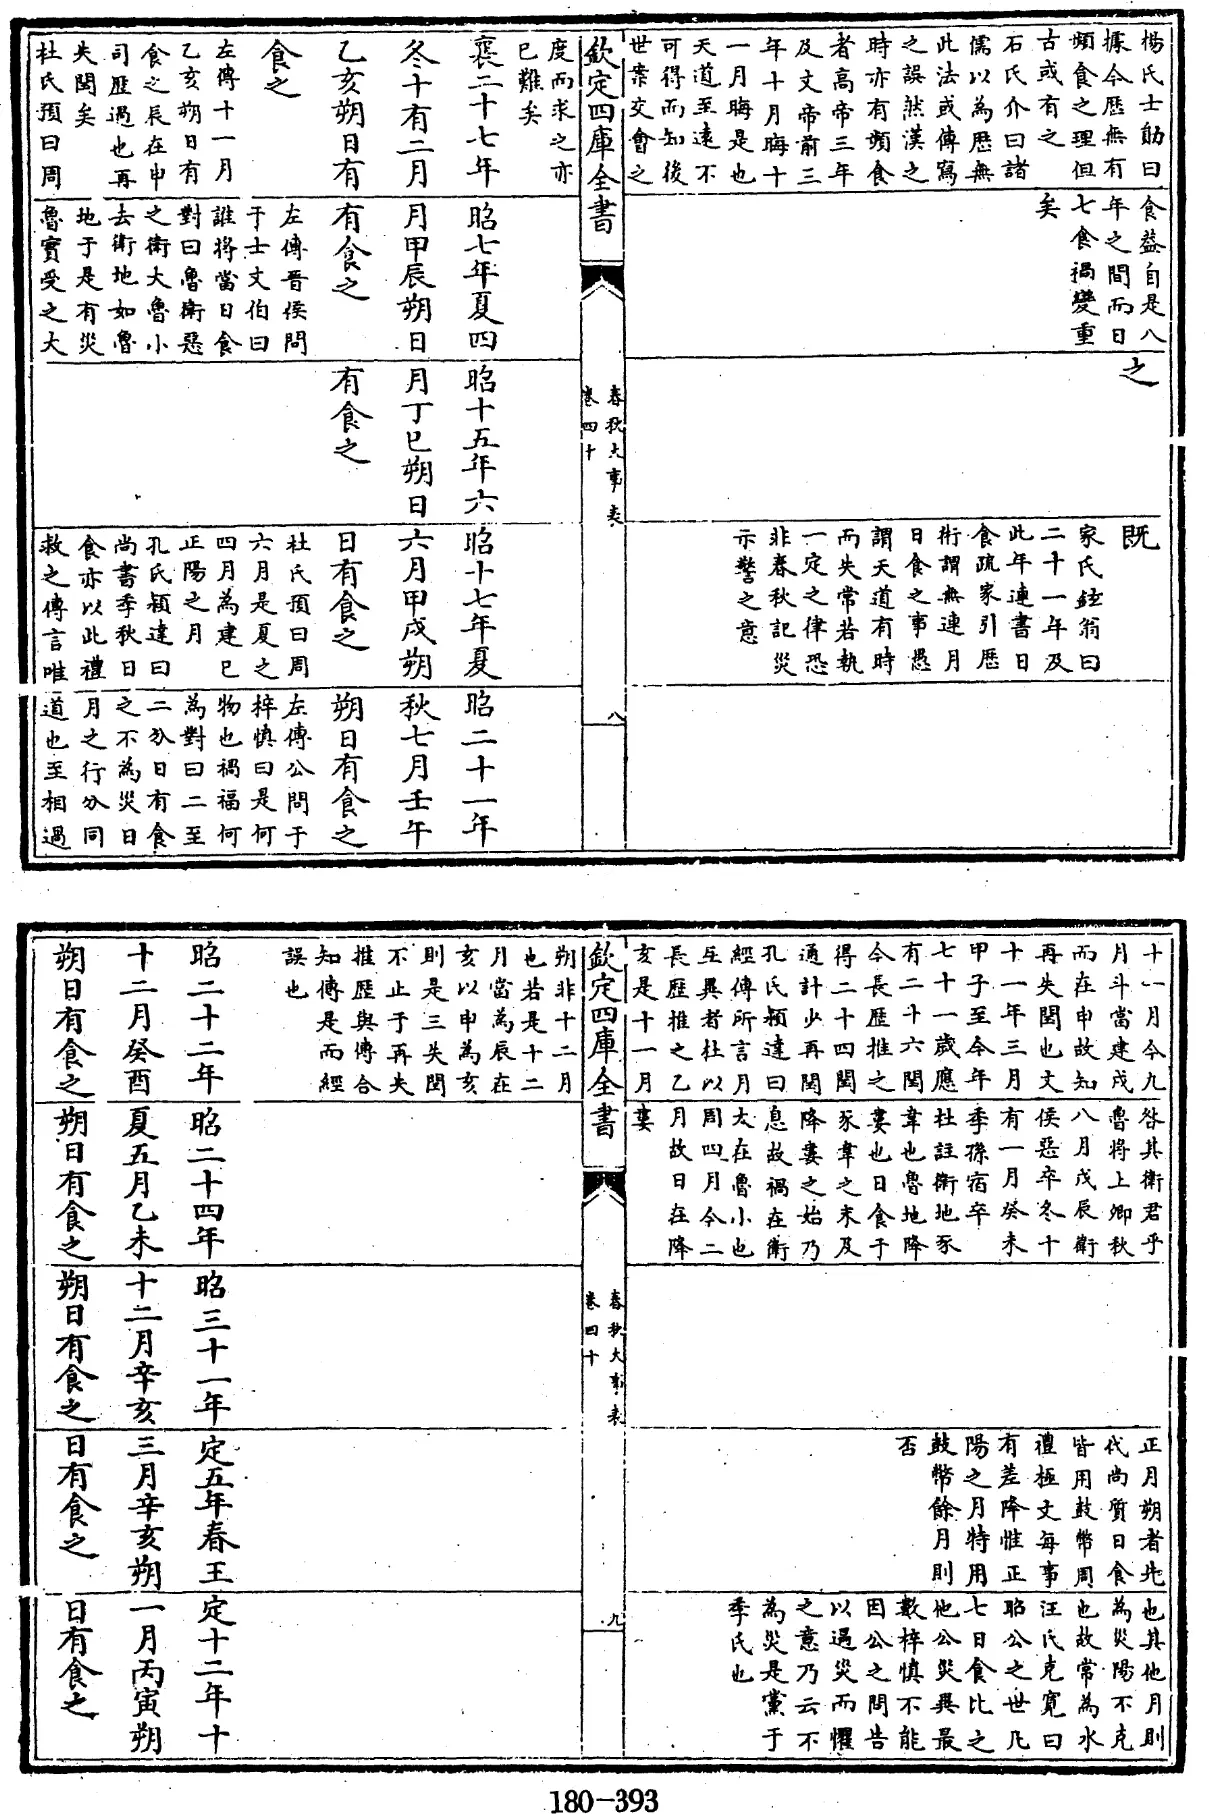 楊氏士勛曰
據今歷無有
頻食之理但
古或有之
石氏介曰諸
儒以為歷無
此法或傳寫
之誤然漢之
時亦有頻食
者高帝三年
及文帝前三
年十月晦十
一月晦是也
天道至遠不
可得而知後
世案交會之
食益自是八
年之間而日
七食禍變重
矣
之
既
家氏鉉翁曰
二十一年及
此年連書日
食疏家引歷
術謂無連月
日食之事愚
謂天道有時
而失常若執
一定之律恐
非春秋記災
示警之意
欽定四庫全書
春秋大事表
卷四十
八
度而求之亦
已難矣
襄二十七年
冬十有二月
乙亥朔日有
食之
左傳十一月
乙亥朔日有
食之辰在申
司歷過也再
失閏矣
杜氏預曰周
昭七年夏四
月甲辰朔日
有食之
左傳晉侯問
于士文伯曰
誰將當日食
對曰魯衛惡
之衛大魯小
去衛地如魯
地于是有災
魯實受之大
昭十五年六
月丁巳朔日
有食之
昭十七年夏
六月甲戌朔
日有食之
杜氏預曰周
六月是夏之
四月為建巳
正陽之月
孔氏穎達曰
尚書季秋日
食亦以此禮
救之傳言唯
昭二十一年
秋七月壬午
朔日有食之
左傳公問于
梓慎曰是何
物也禍福何
為對曰二至
二分日有食
之不為災日
月之行分同
道也至相過
十一月今九
月斗當建戌
而在申故知
再失閏也文
十一年三月
甲子至今年
七十一歲應
有二十六閏
今長歷推之
得二十四閏
通計少再閏
孔氏穎達曰
經傳所言月
互異者杜以
長歷推之乙
亥是十一月
咎其衛君乎
魯將上卿秋
八月戊辰衛
侯惡卒冬十
有一月癸未
季孫宿卒
杜註衛地豕
韋也魯地降
婁也日食于
豕韋之末及
降婁之始乃
息故禍在衛
大在魯小也
周四月今二
月故日在降
婁
正月朔者先
代尚質日食
皆用鼓幣周
禮極文每事
有差降惟正
陽之月特用
鼓幣餘月則
否
也其他月則
為災陽不克
也故常為水
汪氏克寬曰
昭公之世凡
七日食比之
他公災異最
數梓慎不能
因公之問告
以遇災而懼
之意乃云不
為災是黨于
季氏也
欽定四庫全書
春秋大事表
卷四十
九
朔非十二月
也若是十二
月當為辰在
亥以申為亥
則是三失閏
不止于再失
推歷與傳合
知傳是而經
誤也
昭二十二年
十二月癸酉
朔日有食之
昭二十四年
夏五月乙未
朔日有食之
昭三十一年
十二月辛亥
朔日有食之
定五年春王
三月辛亥朔
日有食之
定十二年十
一月丙寅朔
日有食之
180-393